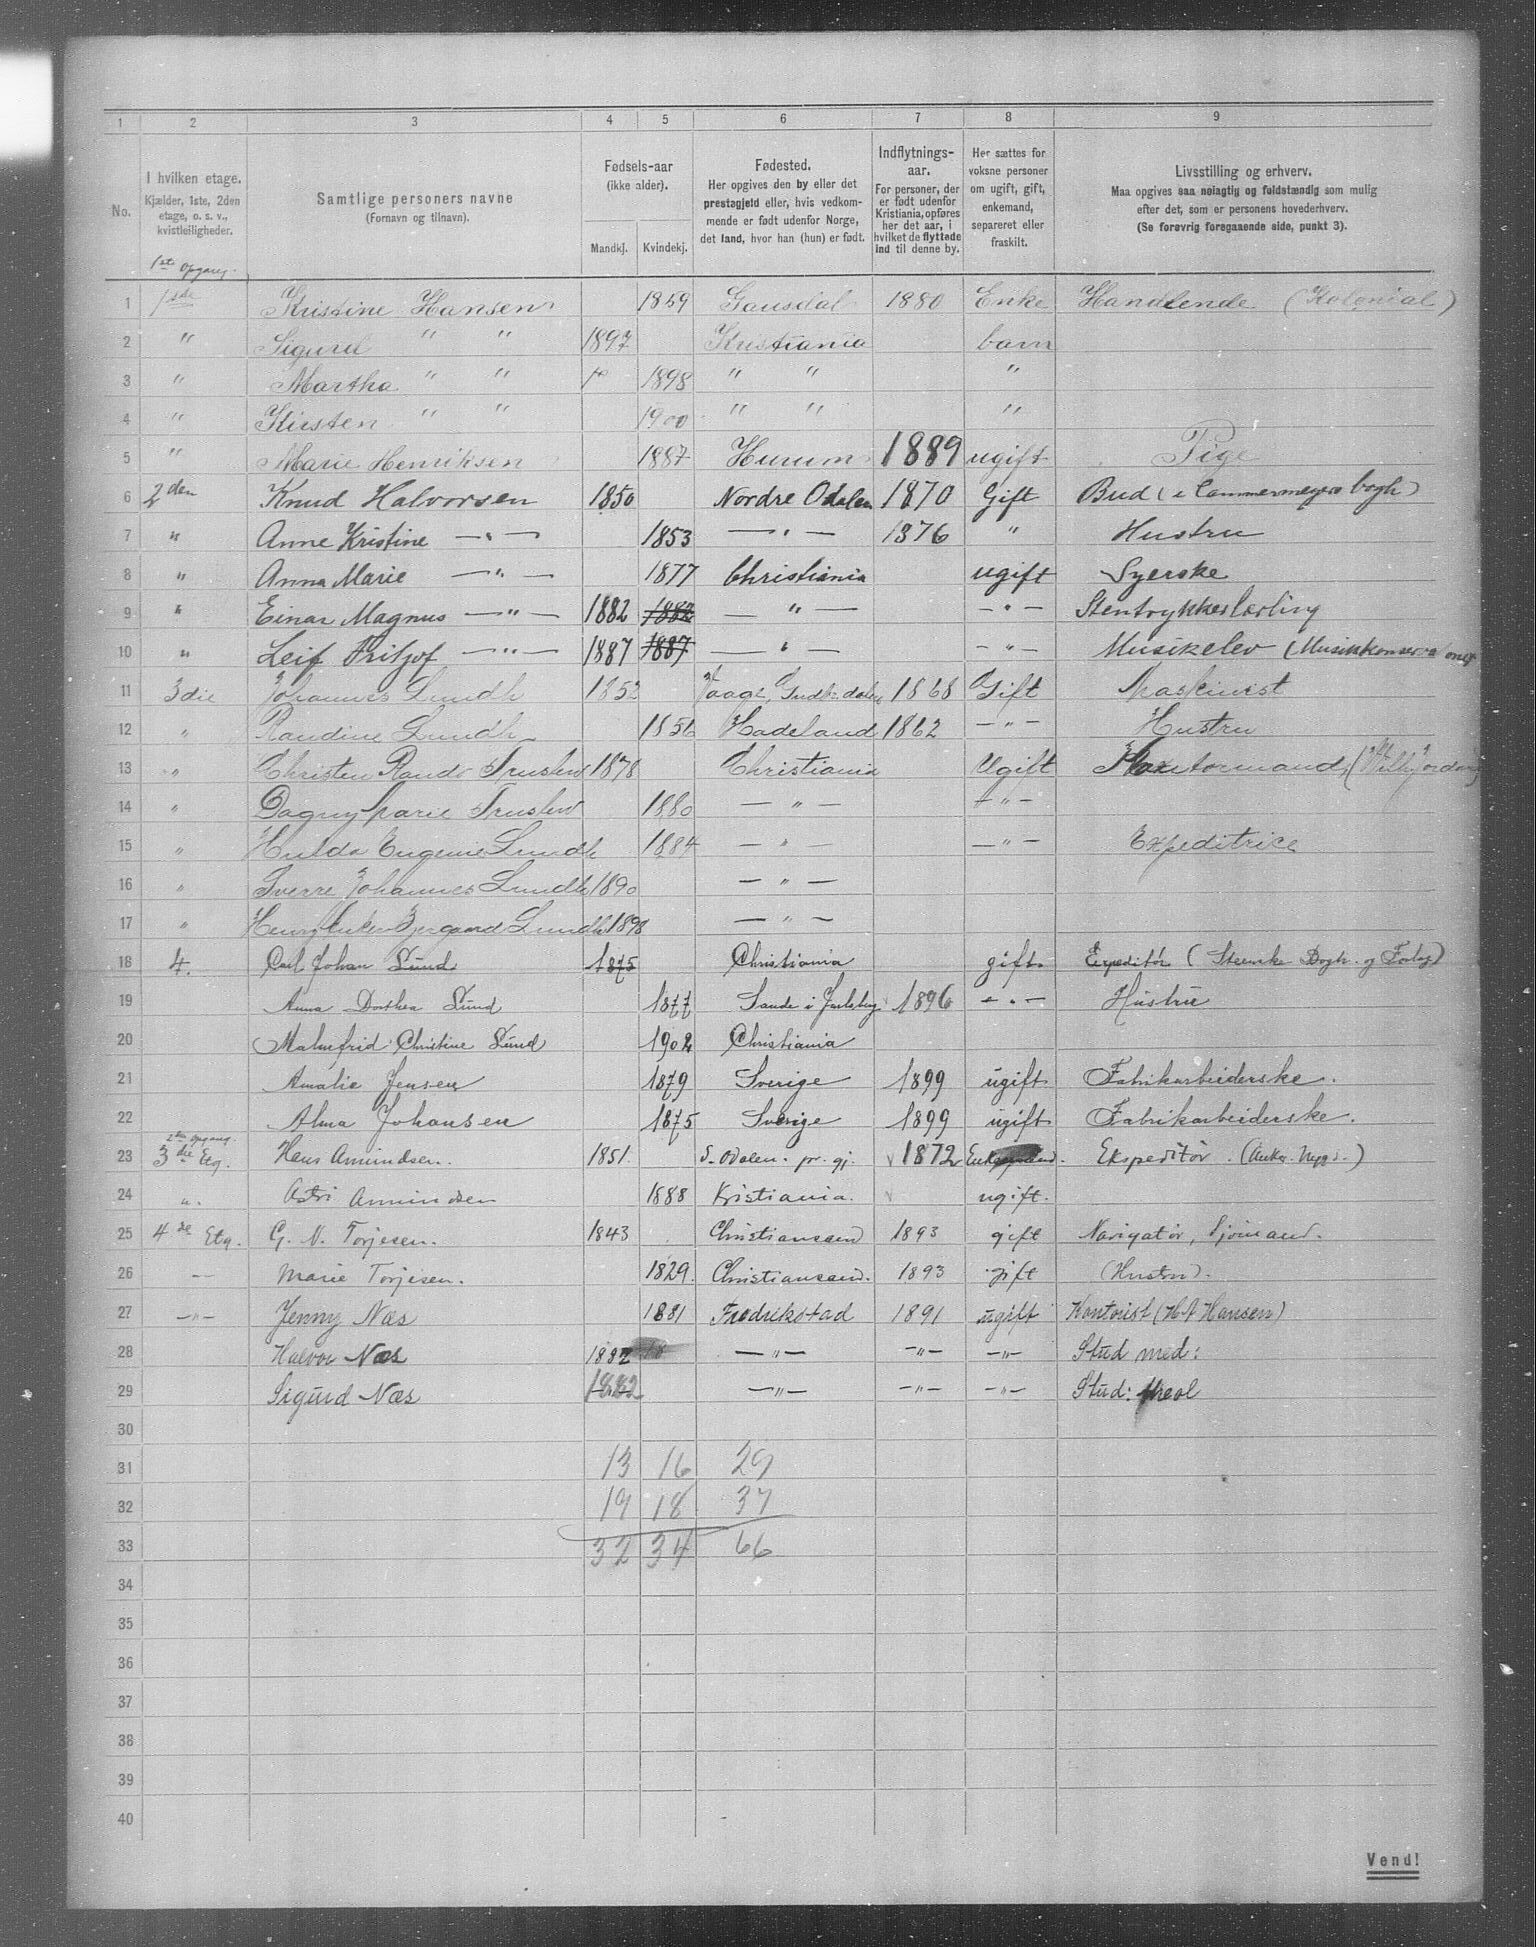 1 2 3 4 5 6 7 8 9
No.
I hvilken etage.
Kjælder, 1ste, 2den
etage, o. s. v.,
kvistleiligheder.
Samtlige personers navne
(Fornavn og tilnavn).
Fødsels-aar
(ikke alder).
Mandkj. Kvindekj.
Fødested.
Her opgives den by eller det
prestegjeld eller, hvis vedkom-
mende er født udenfor Norge,
det land, hvor han (hun) er født.
Indflytnings-
aar.
For personer, der
er født udenfor
Kristiania, opføres
her det aar, i
hvilket de flyttede
ind til denne by.
Her sættes for
voksne personer
om ugift, gift,
enkemand,
separeret eller
fraskilt.
Livsstilling og erhverv.
Maa opgives saa nøiagtig og fuldstændig som mulig
efter det, som er personens hovederhverv.
(Se forøvrig foregaaende side, punkt 3).
1ste Opgang.
1 1ste Kristine Hansen 1859 Gausdal 1880 Enke Handlende (Kolonial)
2 " Sigurd " " 1897 Kristiania barn
3 " Martha " " 1898 " " "
4 " Kirsten " " 1900 " " "
5 " Marie Henriksen 1887 Hurum 1889 ugift Pige
6 2den Knud Halvorsen 1850 Nordre Odalen 1870 Gift Bud (i Cammermeyers bogh)
7 " Anne Kristine — " — 1853 — " — 1876 " Hustru
8 " Anna Marie — " — 1877 Christiania ugift Syerske
9 " Einar Magnus — " — 1882 1882 — " — — " — Stentrykkerlærling
10 " Leif Fritjof — " — 1887 1887 — " — — " — Musikelev
11 3die Johannes Lundh 1852 Vaage, Gudbr.dalen 1868 Gift Maskinist
12 " Randine Lundh 1856 Hadeland 1862 — " — Hustru
13 " Christen 1878 Christiania Ugift
14 " Dagny Marie 1880 — " — — " —
15 " Hulda Eugenie Lundh 1884 — " — — " — Expeditrice
16 " Sverre Johannes Lundh 1890 — " —
17 " Henry Lundh 1898 — " —
18 4. Carl Johan Lund 1875 Christiania gift Expeditør (Steenske Bogtr. og Forlag)
19 Anna Dorthea Lund 1877 Sande i Jarlsberg 1896 — " — Hustru
20 Malmfrid Christine Lund 1902 Christiania
21 Amalie Jensen 1879 Sverige 1899 ugift Fabrikarbeiderske.
22 Alma Johansen 1875 Sverige 1899 ugift Fabrikarbeiderske.
2den Opgang
23 3die Etg. Hans Amundsen. 1851. S. Odalen. pr. gj. 1872 Enkemand. Ekspeditør.
24 ". Astri Amundsen 1888 Kristiania. ugift.
25 4de Etg. G. N. Torjesen. 1843 Christianssand 1893 gift Navigatør, Sjømand.
26 — Marie Torjesen. 1829. Christianssand. 1893 gift (Hustru).
27 — " — Jenny Næs 1881 Fredrikstad 1891 ugift Kontorist (H A Hansen)
28 Halvor Næs 1882 18 — " — — " — — " — Stud med:
29 Sigurd Næs 1882 — " — — " — — " — Stud: theol
30
31 13 16 29
32 19 18 37
33 32 34 66
34
35
36
37
38
39
40
Vend!